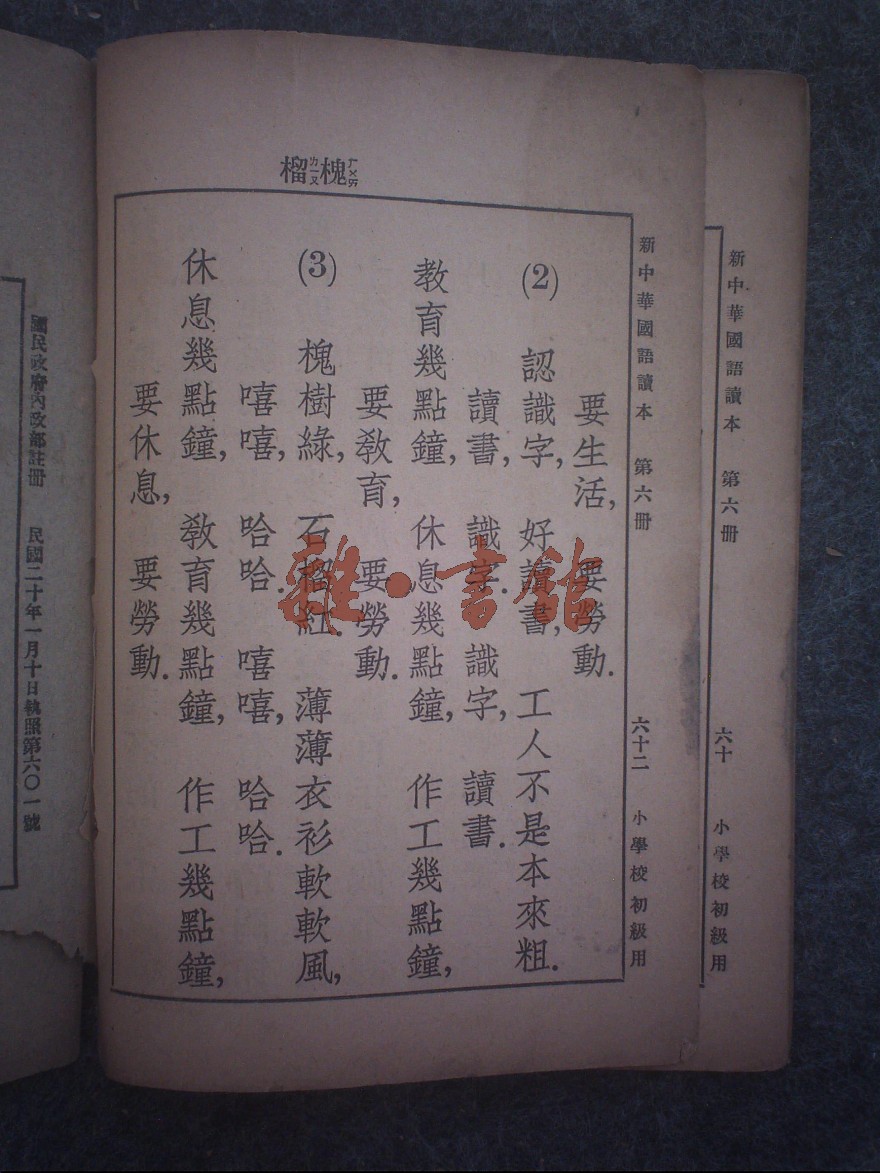 新中華國語讀本 第六冊 六十 小學校初級用
新中華國語讀本 第六冊 六十二 小學校初級用
槐ㄏㄨㄞ榴ㄌㄧㄡ
要生活, 要勞動.
(2) 認識字, 好讀書, 工人不是本來粗.
讀書, 識字. 識字, 讀書.
教育幾點鐘, 休息幾點鐘, 作工幾點鐘,
要教育, 要勞動.
(3) 槐樹綠, 石榴紅. 薄薄衣衫軟軟風,
嘻嘻, 哈哈. 嘻嘻, 哈哈.
休息幾點鐘, 教育幾點鐘, 作工幾點鐘,
要休息, 要勞動.
國民政府內政部註冊 民國二十年一月十日執照第六〇一號
雜·書館